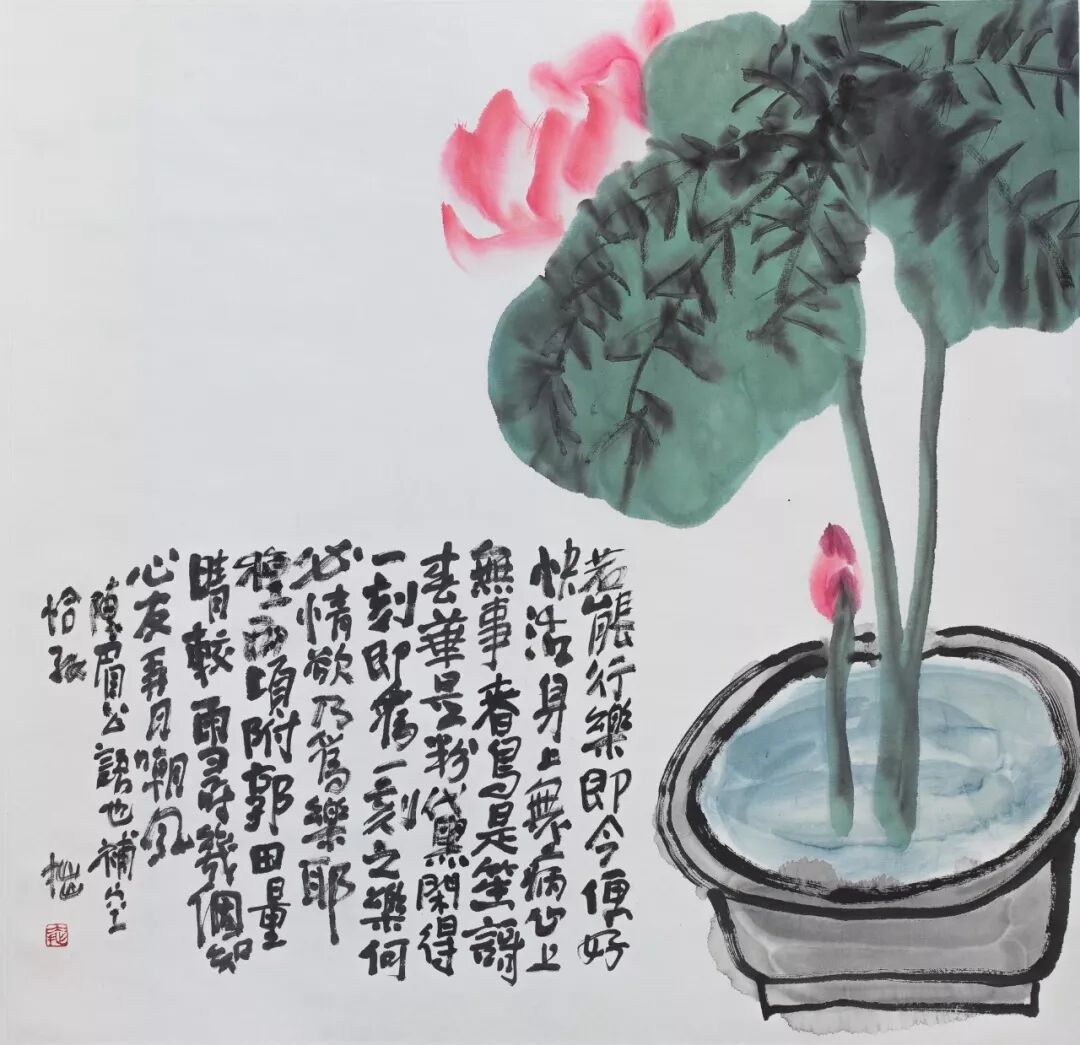 若能行樂即今便好
快活身上無病心上
無事春鳥是笙謌
春華是粉黛閑得
一刻即為一刻之樂何
必情欲乃為樂耶
種兩頃附郭田量
晴較雨尋幾個知
心友弄月嘲風
陳眉公語也補空
恰 拙